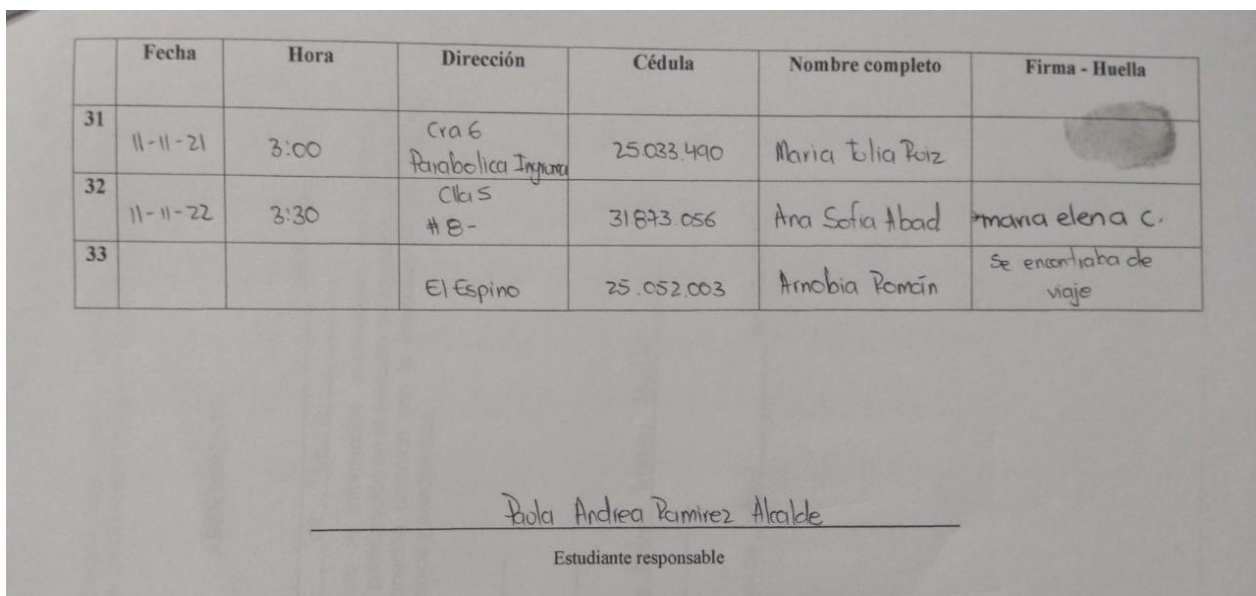 Fecha Hora Dirección Cédula Nombre completo Firma - Huella
31
11-11-21 3:00 Cra 6 25.033.490 Maria Ruiz
Parabolica
32
11-11-22 3:30 # 8- 31873.056 Ana Sofia Abad maria elena c.
33
El Espino 25.052.003 Arnobia Román Se encontraba de
viaje
Paola Andrea Ramirez Alcalde
Estudiante responsable